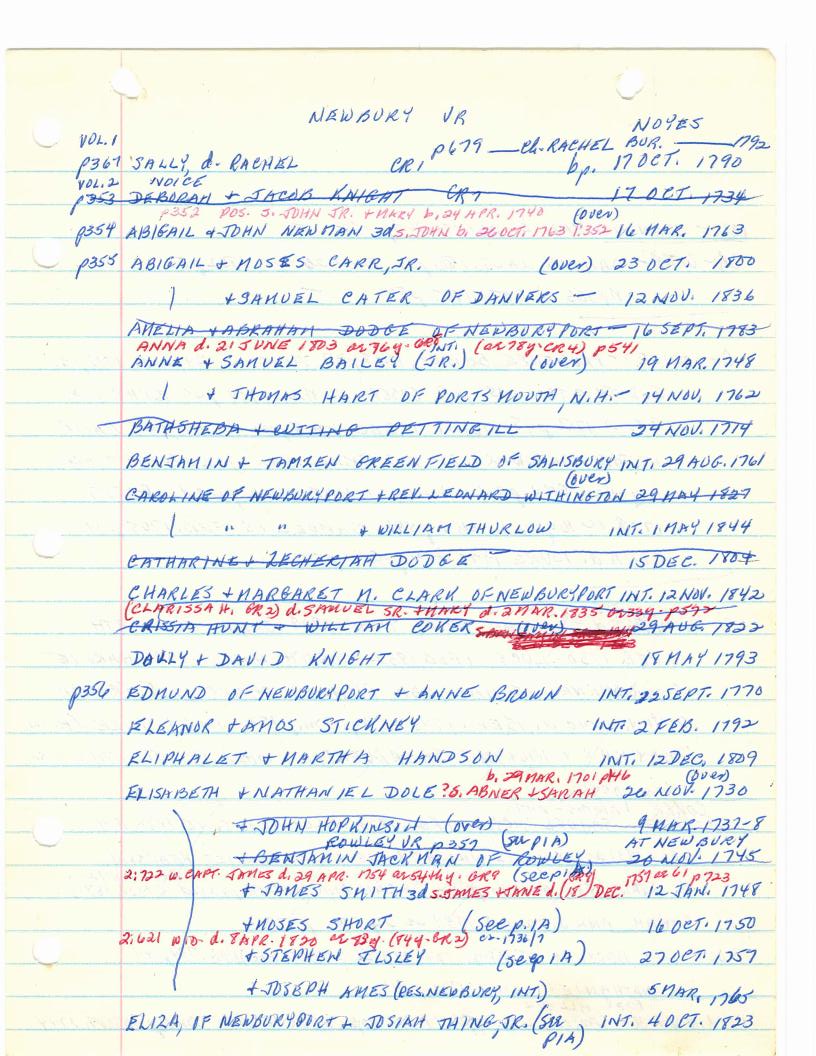 NEWBURY VR
NOYES
VOL. 1 p679 — Ch. RACHEL BUR. — 1792
p367 SALLY, d. RACHEL CR1 bp. 17 OCT. 1790
VOL. 2 NOICE
p353 DEBORAH + JACOB KNIGHT CR7 17 OCT. 1734
p352 POS. S. JOHN JR. + MARY b. 24 APR. 1740 (over)
p354 ABIGAIL + JOHN NEWMAN 3d s. JOHN b. 26 OCT. 1763 1:352 16 MAR. 1763
p355 ABIGAIL + MOSES CARR, JR. (over) 23 OCT. 1800
+ SAMUEL CATER OF DANVERS — 12 NOV. 1836
AMELIA + ABRAHAM DODGE OF NEWBURYPORT — 16 SEPT. 1783
ANNA d. 21 JUNE 1803 ae 76y. GR8 INT. (ae 78y. CR4) p541
ANNE + SAMUEL BAILEY (JR.) (over) 19 MAR. 1748
+ THOMAS HART OF PORTSMOUTH, N.H. — 14 NOV. 1762
BATHSHEBA + CUTTING PETTINGILL 24 NOV. 1714
BENJAMIN + TAMZEN GREENFIELD OF SALISBURY INT. 29 AUG. 1761
(over)
CAROLINE OF NEWBURYPORT + REV. LEONARD WITHINGTON 29 MAY 1827
" " + WILLIAM THURLOW INT. 1 MAY 1844
CATHARINE + ZECHERIAH DODGE 15 DEC. 1804
CHARLES + MARGARET M. CLARK OF NEWBURYPORT INT. 12 NOV. 1842
(CLARISSA H. GR2) d. SAMUEL SR. + MARY d. 2 MAR. 1835 ae 33y. p592
CRISSIA HUNT + WILLIAM COKER (over) 29 AUG. 1822
DOLLY + DAVID KNIGHT 18 MAY 1793
p356 EDMUND OF NEWBURYPORT + ANNE BROWN INT. 22 SEPT. 1770
ELEANOR + AMOS STICKNEY INT. 2 FEB. 1792
ELIPHALET + MARTHA HANDSON INT. 12 DEC. 1809
b. 29 MAR. 1701 p146 (over)
ELISABETH + NATHANIEL DOLE ?S. ABNER + SARAH 26 NOV. 1730
+ JOHN HOPKINSON (over) 9 MAR. 1737-8
ROWLEY VR p357 (see p1A) AT NEWBURY
+ BENJAMIN JACKMAN OF ROWLEY 20 NOV. 1745
2:722 w. CAPT. JAMES d. 29 APR. 1754 ae 54thy. GR9 (see p1A) 1759 ae 61 p723
+ JAMES SMITH 3d s. JAMES + JANE d. (18) DEC. 12 JAN. 1748
+ MOSES SHORT (see p. 1A) 16 OCT. 1750
2:621 wid. d. 8 APR. 1820 ae 83y. (84y. GR2) ca. 1736/7
+ STEPHEN ILSLEY (see p1A) 27 OCT. 1757
+ JOSEPH AMES (RES. NEWBURY, INT.) 5 MAR. 1765
ELIZA, OF NEWBURYPORT + JOSIAH THING, JR. (SEE p1A) INT. 4 OCT. 1823